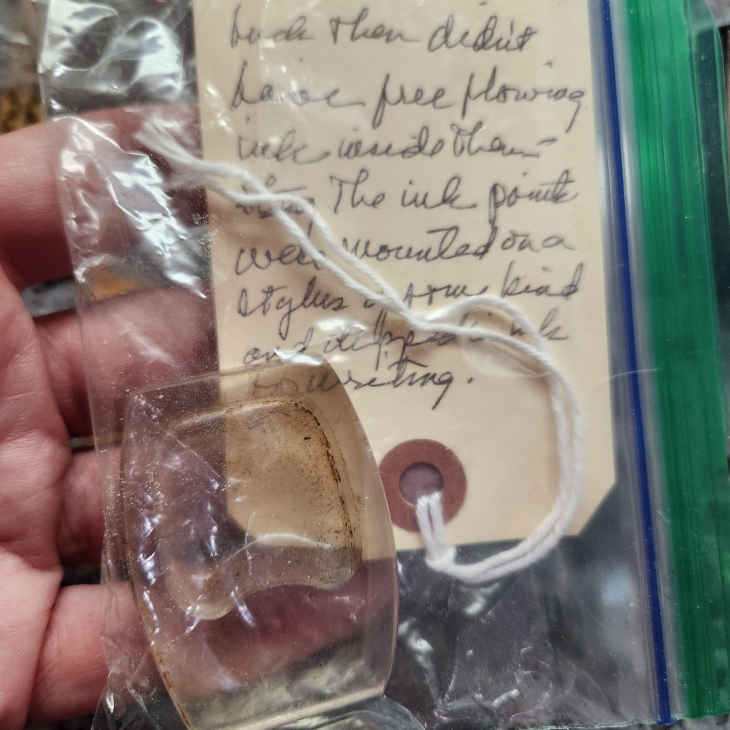 back then didn't
have free flowing
ink inside them
The ink points
were mounted on a
stylus of some kind
and dipped ink
for writing.